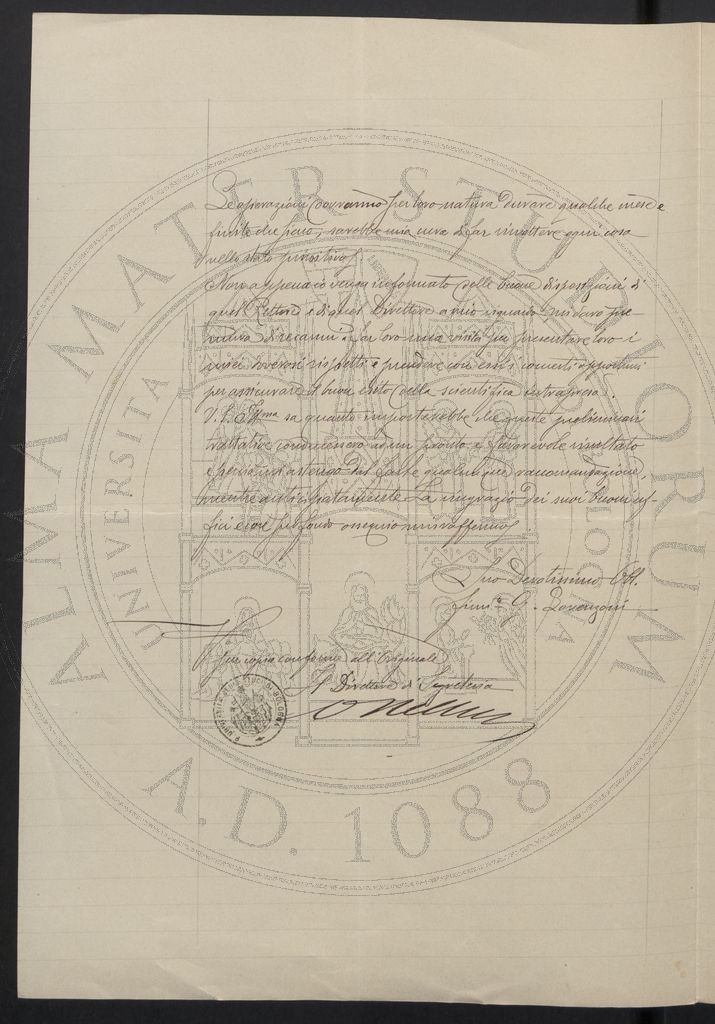 Le operazioni dovranno per loro natura durare qualche mese e
finite che sieno, sarebbe mia cura di far rimettere ogni cosa
nello stato primitivo.
Non appena io venga informato delle buone disposizioni di
quel Rettore e di quel Direttore a mio riguardo, mi darò pre
mura di recarmi a far loro una visita per presentare loro i
miei doverosi rispetti e prendere con essi i concerti opportuni
per assicurare il buon esito della scientifica intrapresa.
V. S. Illma sa quanto importerebbe che queste preliminari
trattative conducessero ad un pronto e favorevole risultato
e perciò mi astengo dal farle qualunque raccomandazione,
mentre anticipatamente La ringrazio dei suoi buoni uf-
fici e con profondo ossequio mi raffermo
Suo Devotissimo Obb.
firm.o G. Lorenzoni
Per copia conforme all'Originale
Il Direttore di Segreteria
R. UNIVERSITÀ DEGLI STUDI DI BOLOGNA
ALMA MATER STUDIORUM
UNIVERSITÀ DI BOLOGNA
A.D. 1088